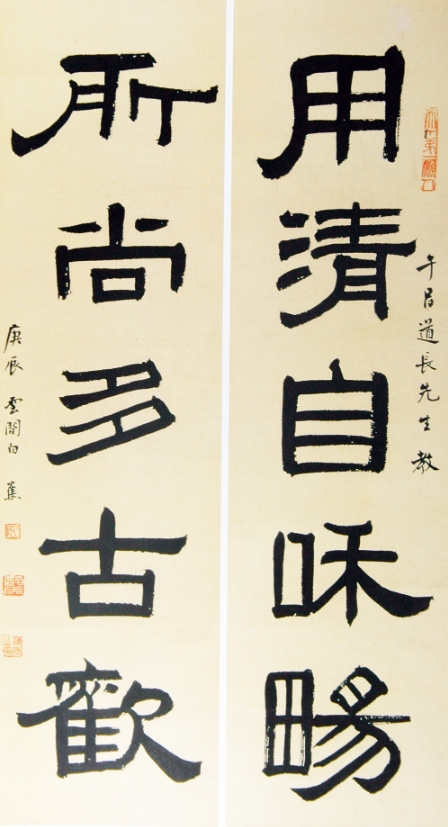 午昌道長先生教
用清自咊畼
所尚多古歡
庚辰雲間白蕉